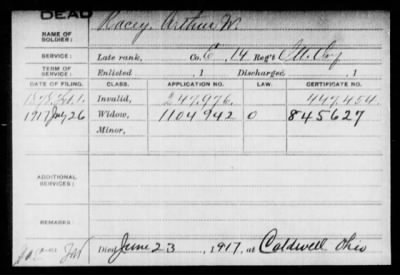 DEAD
NAME OF SOLDIER: Macey, Arthur W.
SERVICE: Late rank, Co. E, 14 Reg't O. Cav.
TERM OF SERVICE: Enlisted , 1 Discharged , 1
DATE OF FILING. CLASS. APPLICATION NO. LAW. CERTIFICATE NO.
Invalid, 247,976. 447,454.
1917 July 26 Widow, 1104942 O 845627
Minor,
ADDITIONAL SERVICES:
REMARKS:
Died June 23, 1917, at Caldwell Ohio